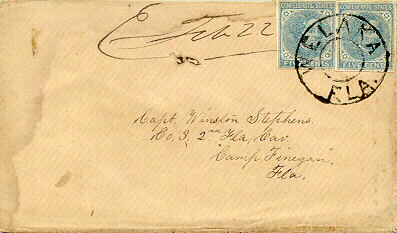 Feb 22
CONFEDERATE STATES CONFEDERATE STATES
FIVE CENTS FIVE CENTS
WELAKA
FLA.
Capt. Winston Stephens
Co, 3, 2nd Fla, Cav.
"Camp Finegan",
Fla.